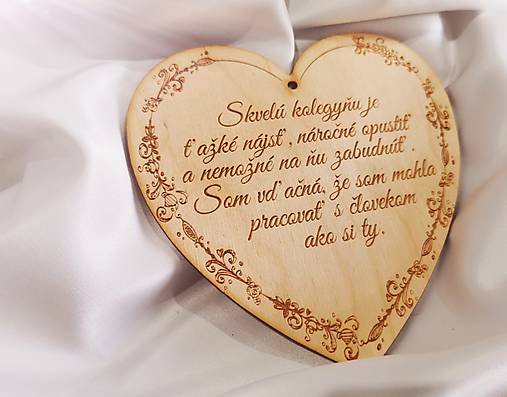 Skvelú kolegyňu je
ťažké nájsť, náročné opustiť
a nemožné na ňu zabudnúť.
Som vďačná, že som mohla
pracovať s človekom
ako si ty.